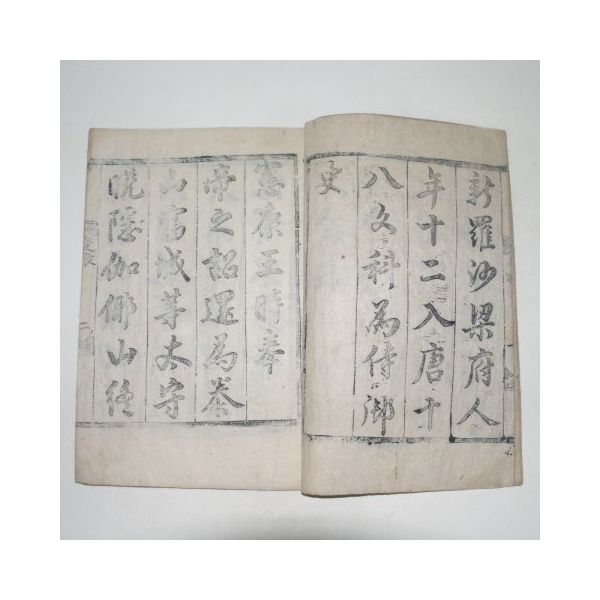 新羅沙梁府人
年十二入唐十
八文科為侍御
史
憲康王時奉
帝之詔還為泰
山富城等太守
晩隱伽倻山終